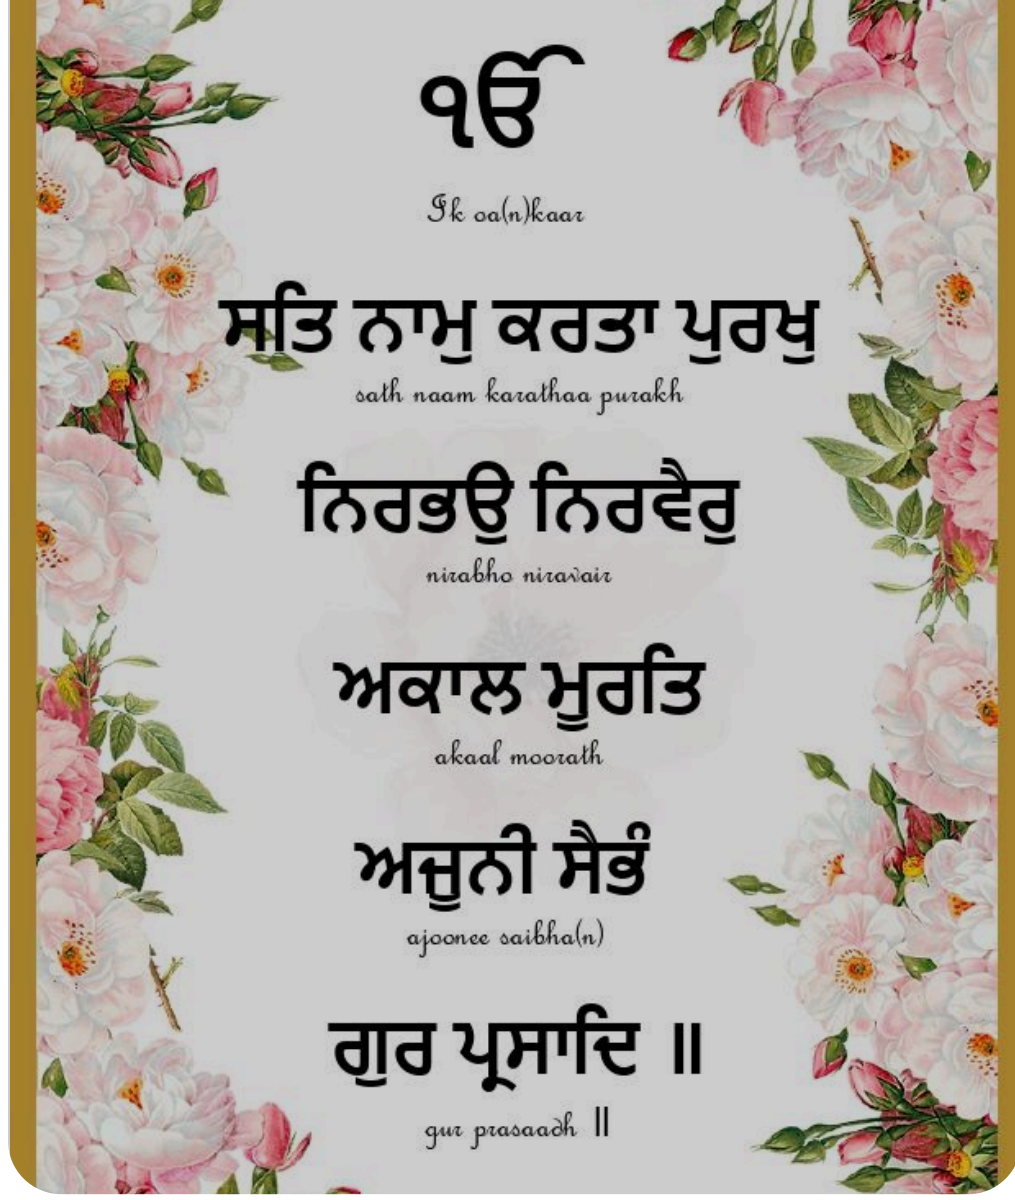 ੴ
Ik oa(n)kaar
ਸਤਿ ਨਾਮੁ ਕਰਤਾ ਪੁਰਖੁ
sath naam karathaa purakh
ਨਿਰਭਉ ਨਿਰਵੈਰੁ
nirabho niravair
ਅਕਾਲ ਮੂਰਤਿ
akaal moorath
ਅਜੂਨੀ ਸੈਭੰ
ajoonee saibha(n)
ਗੁਰ ਪ੍ਰਸਾਦਿ ॥
gur prasaadh ||